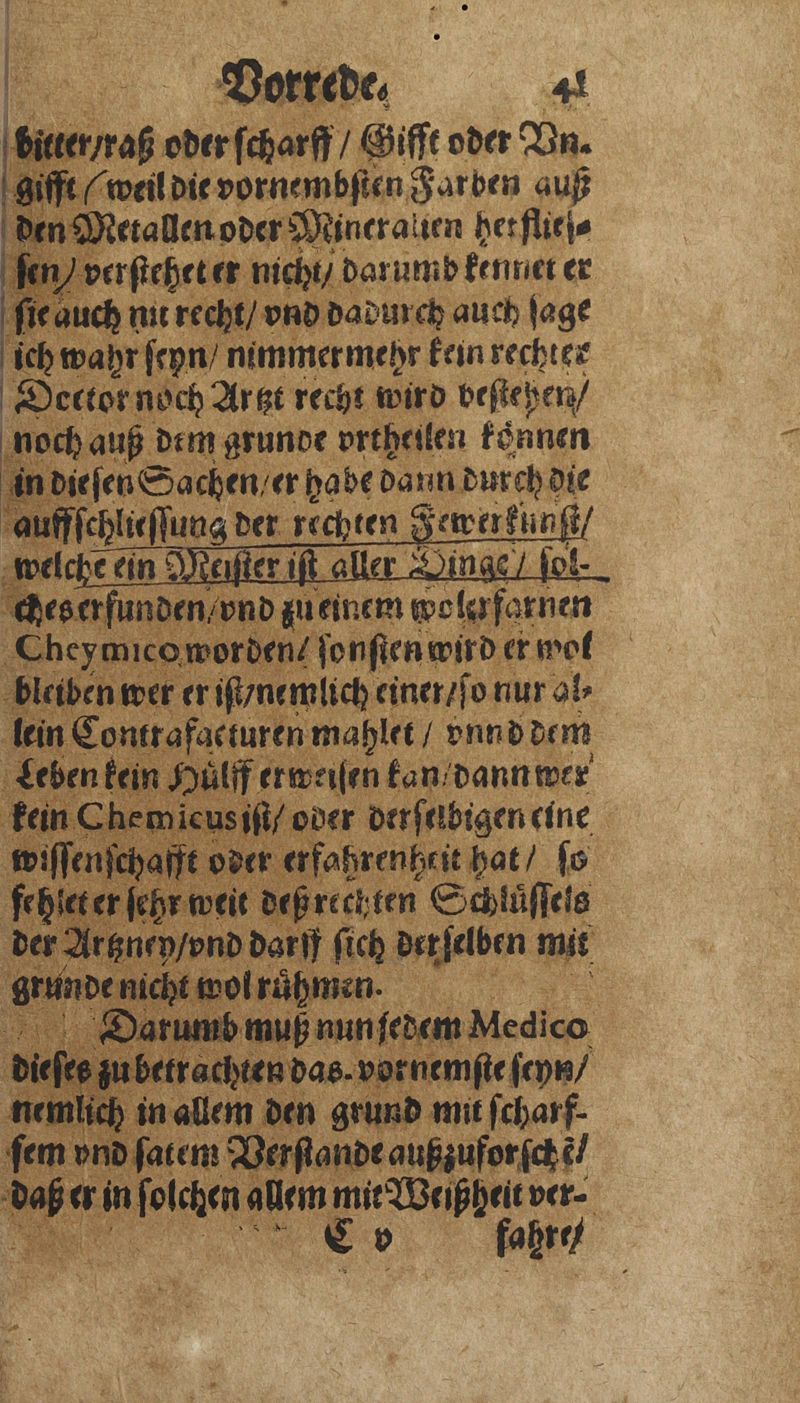 Vorrede. 41
bitter/raß oder scharff / Gifft oder Vn-
gifft (weil die vornembsten Farben auß
den Metallen oder Mineralien herflies-
sen) verstehet er nicht/ darumb kennet er
sie auch nit recht/ vnd dadurch auch sage
ich wahr seyn/ nimmermehr kein rechter
Doctor noch Artzt recht wird bestehen/
noch auß dem grunde vrtheilen können
in diesen Sachen/er habe dann durch die
auffschliessung der rechten Fewerkunst/
welche ein Meister ist aller Dinge/ sol-
ches erfunden/vnd zu einem wolerfarnen
Cheymico worden/ sonsten wird er wol
bleiben wer er ist/nemlich einer/so nur al-
lein Contrafacturen mahlet / vnnd dem
Leben kein Hülff erweisen kan/dann wer
kein Chemicus ist/ oder derselbigen eine
wissenschafft oder erfahrenheit hat/ so
fehlet er sehr weit deß rechten Schlüssels
der Artzney/vnd darff sich derselben mit
grunde nicht wol rühmen.
Darumb muß nun jedem Medico
dieses zu betrachten das vornemste seyn/
nemlich in allem den grund mit scharf-
fem vnd satem Verstande außzuforschē/
daß er in solchen allem mit Weißheit ver-
C v fahre/